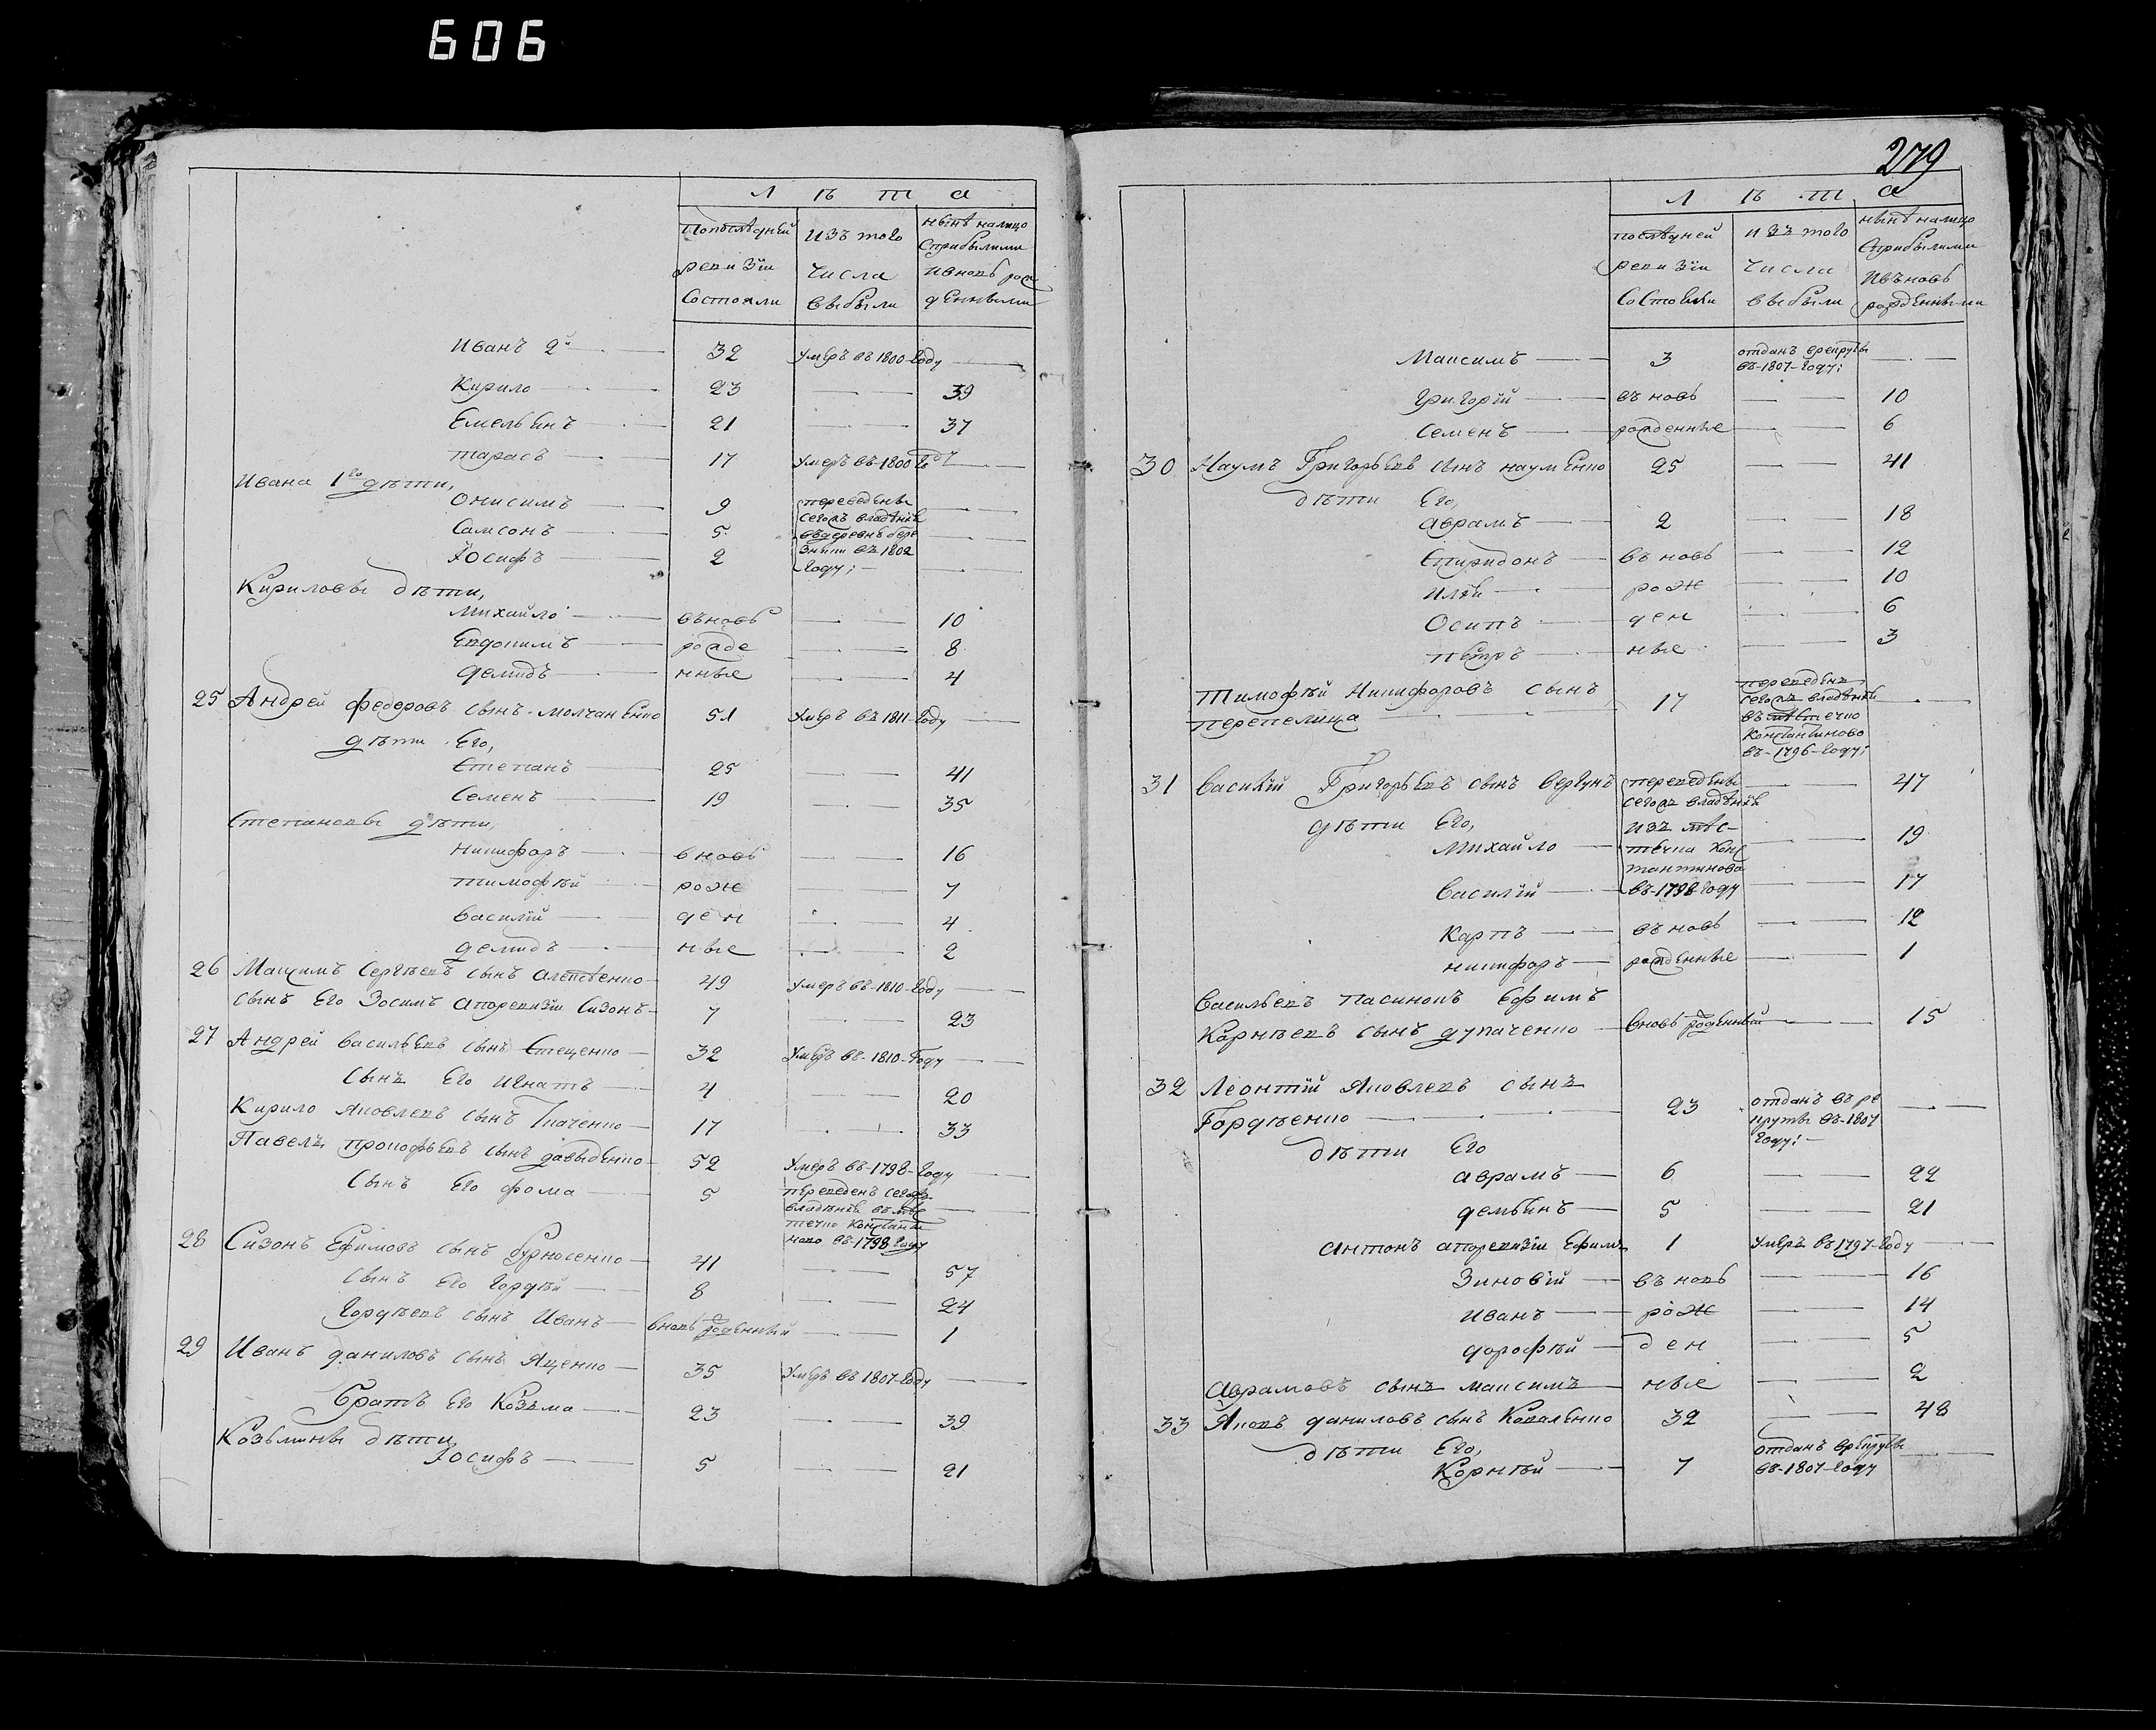 606
Л ѣ т а
Попослѣдней ревизіи Состояли
изъ того Числа выбыли
нынѣ налицо Сприбылыми ивновь рожденными
Иванъ 2й 32 Умеръ въ 1800 году
Кирило 23 39
Емельянъ 21 37
тарасъ 17 Умеръ въ-1800 году
Ивана 1го дѣти,
Онисимъ 9 переведены
Самсонъ 5 сегожъ владѣнія въдеревнѣ бере
Іосифъ 2 зныки въ 1802 году;
Кириловы дѣти,
Михайло въновь 10
Евдокимъ рожде 8
Демидъ нные 4
25 Андрей федоровъ сынъ молчаненко 51 Умеръ въ 1811-году
дѣти Его,
Степанъ 25 41
Семенъ 19 35
Степановы дѣти,
никифоръ вновь 16
тимофѣй рож 7
Василій ден 4
демидъ ные 2
26 Макцимъ Сергѣевъ сынъ Алексѣенко 49 Умеръ въ-1810-году
сынъ Его Зосимъ апоревизіи Сизонъ 7 23
27 Андрей васильевъ сынъ Стеценко 32 Умеръ въ-1810-Году
Сынъ Его Игнатъ 4 20
Кирило Яковлевъ сынъ Ткаченко 17 33
Павелъ прокофьевъ сынъ давыденко 52 Умеръ въ-1798-году
Сынъ Его фома 5 переведенъ сегожъ владѣнія въмѣс течко Констант ново въ-1798 году
28 Сизонъ Ефимовъ сынъ Бурносенко 41 57
Сынъ Его Гордѣй 8 24
Гордѣевъ сынъ Иванъ вновь рожденный 1
29 Иванъ даниловъ сынъ Яценко 35 Умеръ въ 1807-году
Братъ Его Козьма 23 39
Козьмины дѣти,
Іосифъ 5 21
279
Л ѣ т а
послѣдней ревизіи Состояли
изъ того Числа выбыли
нынѣ налицо Сприбылыми ивъновь рожденными
Максимъ 3 отданъ врекруты въ-1807-году;
Григорій въновь 10
Семенъ рожденные 6
30 Наумъ Григорьевъ сынъ науменко 25 41
дѣти Его,
аврамъ 2 18
Спиридонъ въновь 12
илья рож 10
Осипъ ден 6
петръ ные 3
Тимофѣй Никифоровъ сынъ
перепелица 17 переведенъ сегожъ владѣнія въ мѣстечко Константиново въ-1796-году;
31 Василій Григорьевъ сынъ Вергунъ переведены 47
сегожъ владѣнія
дѣти Его, изъ мѣс-
Михайло течка Конс 19
тантинова
Василій въ-1798-году 17
Карпъ въновь 12
никифоръ рожденные 1
Васильевъ пасинокъ Ефимъ
Корнѣевъ сынъ дупаченко вновь рожденный 15
32 Леонтій Яковлевъ сынъ
Гордѣенко 23 отданъ въ ре круты въ-1807 году;
дѣти Его
аврамъ 6 22
демьянъ 5 21
антонъ апоревизіи Ефимъ 1 Умеръ въ 1797-году
Зиновій въновь 16
Иванъ рож 14
дорофѣй ден 5
аврамовъ сынъ максимъ ные 2
33 Яковъ даниловъ сынъ Коваленко 32 48
дѣти Его,
Корнѣй 7 отданъ врекруты въ-1807-году